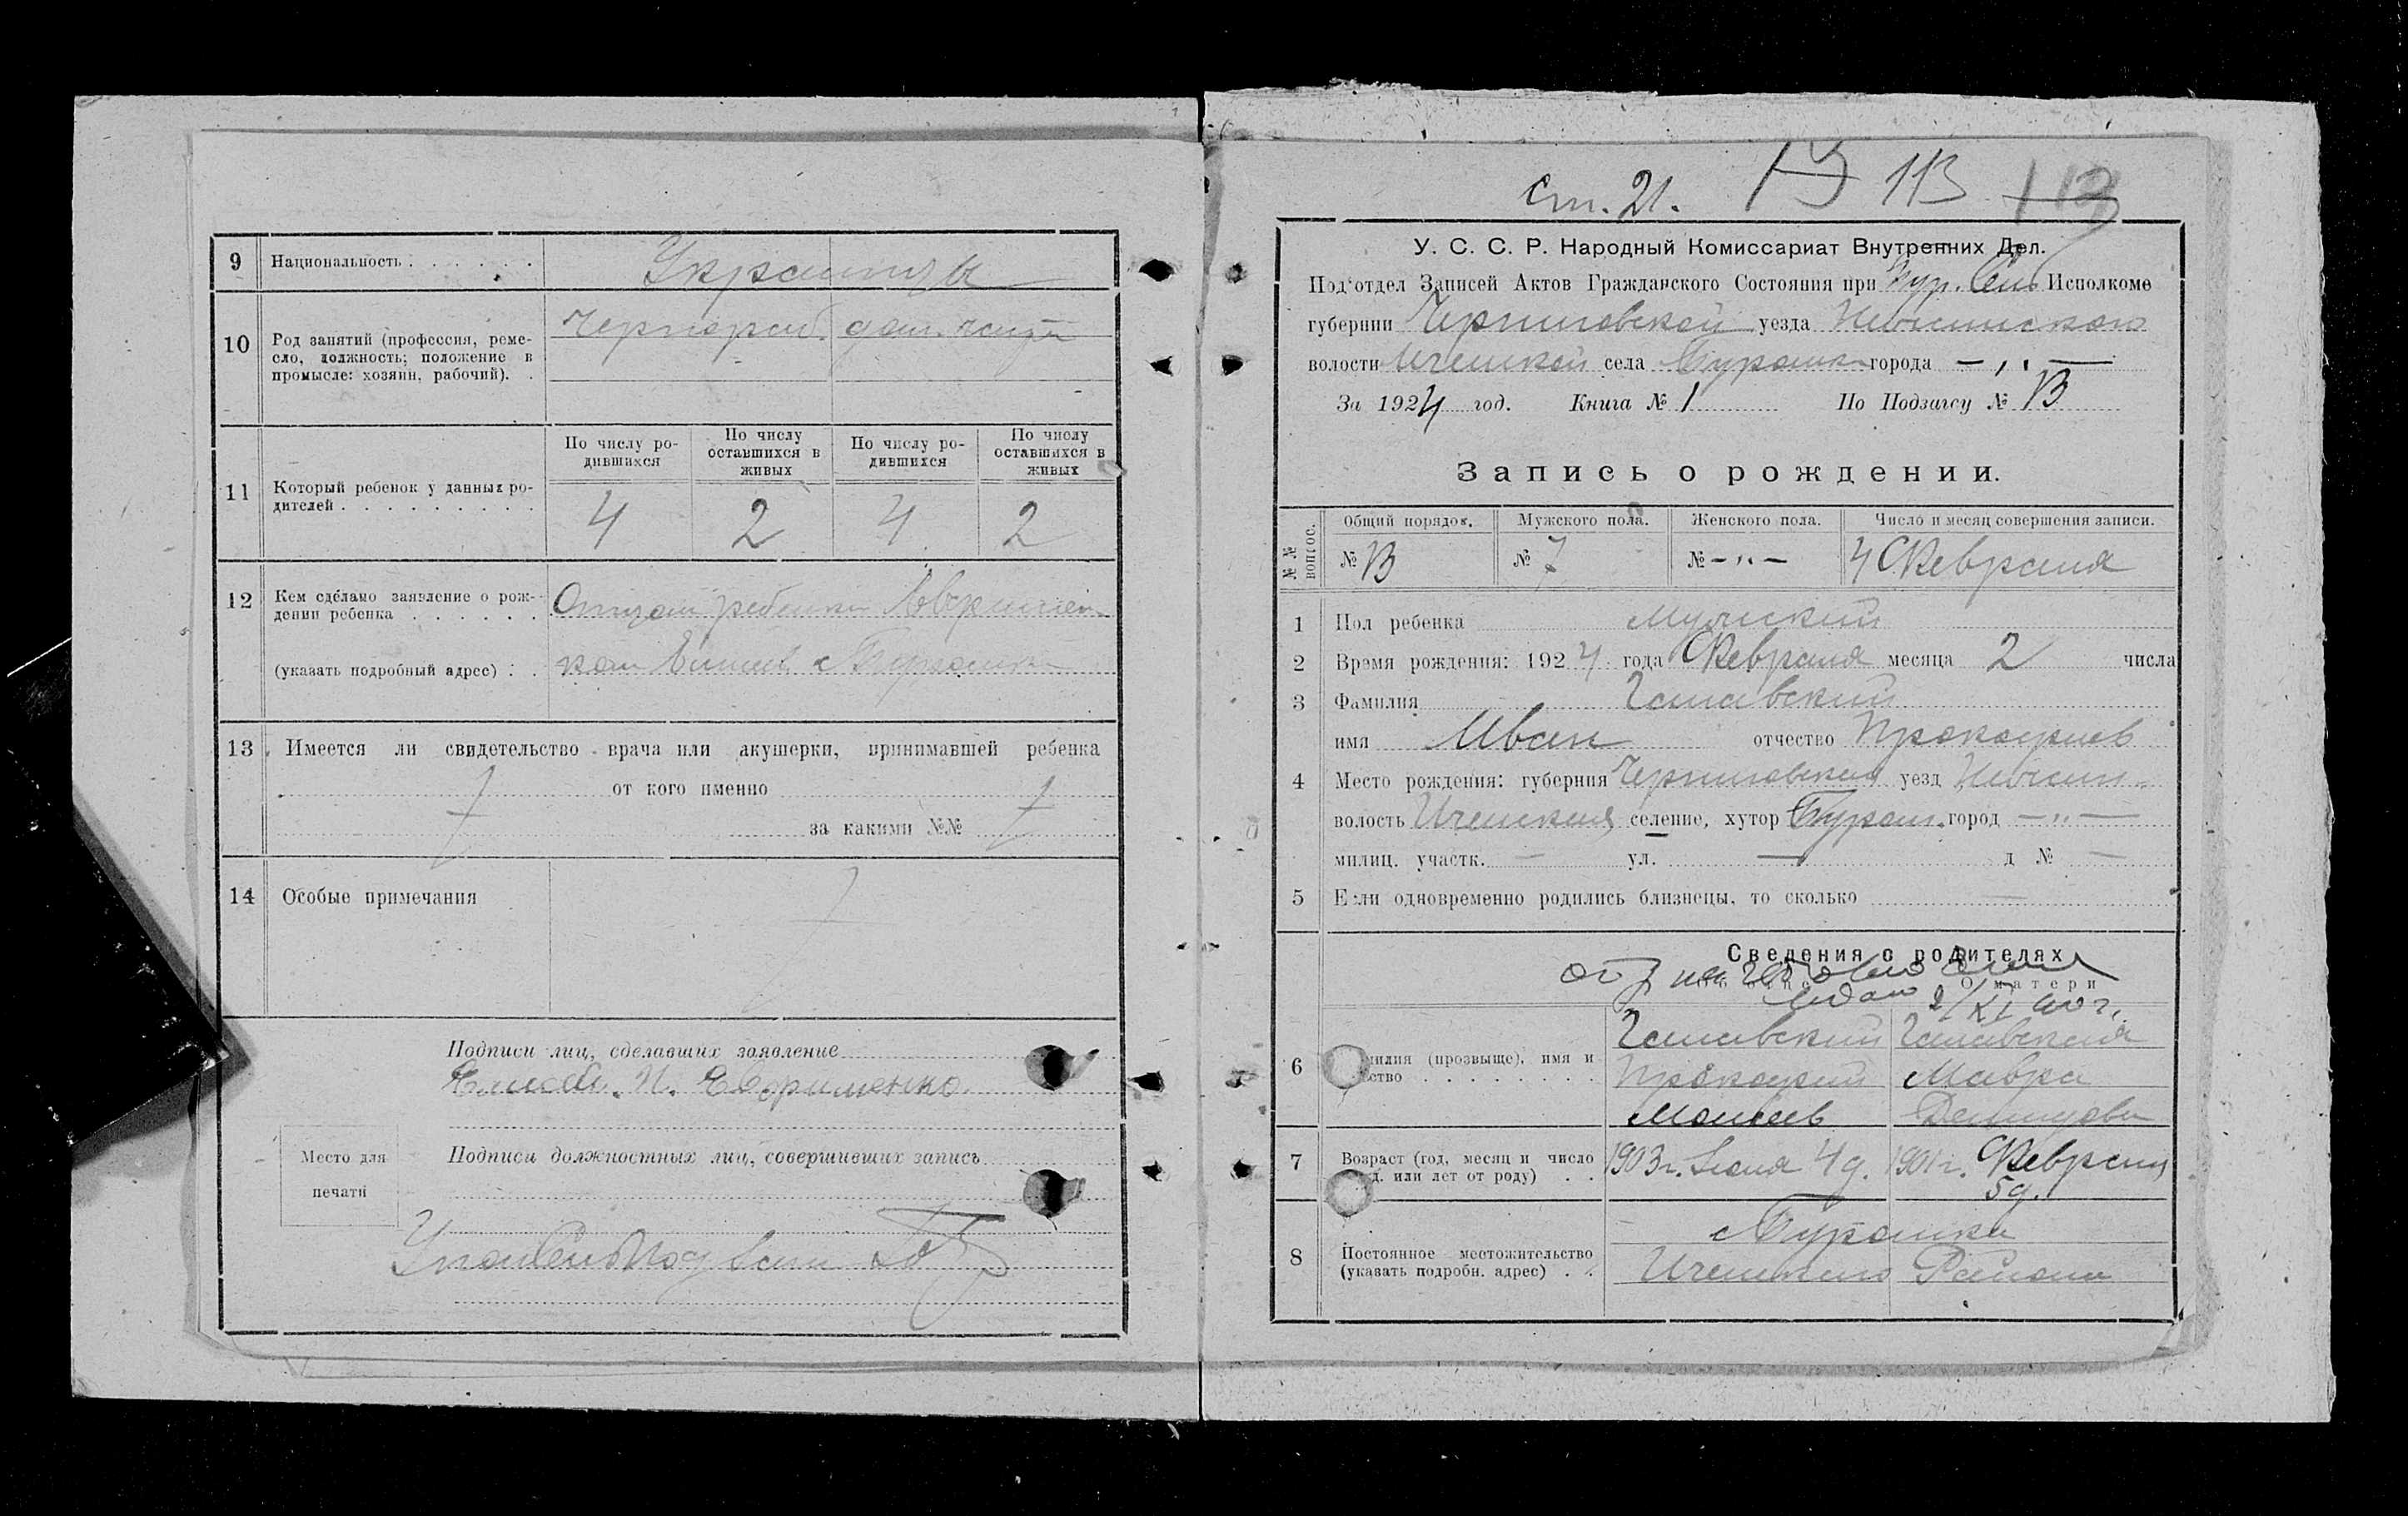 9 Национальность Украинцы
10 Род занятий (профессия, ремесло, должность; положение в промысле: хозяин, рабочий).
Чернораб. дом. хозя
11 Который ребенок у данных родителей
По числу родившихся
По числу оставшихся в живых
По числу родившихся
По числу оставшихся в живых
4 2 4 2
12 Кем сделано заявление о рождении ребенка
(указать подробный адрес)
Отцом ребенка
13 Имеется ли свидетельство врача или акушерки, принимавшей ребенка
от кого именно
за какими №№
14 Особые примечания
Подписи лиц, сделавших заявление
П. Евфименко
Место для печати
Подписи должностных лиц, совершивших запись
ст. 21. 113 113
У. С. С. Р. Народный Комиссариат Внутренних Дел.
Под'отдел Записей Актов Гражданского Состояния при Бур. Сель Исполкоме
губернии Черниговской уезда Нежинского
волости Иченской села Буромка города — „ —
За 1924 год. Книга № 1 По Подзагсу № 13
Запись о рождении.
№№ вопрос.
Общий порядок. Мужского пола. Женского пола. Число и месяц совершения записи.
№ 13 № 7 № — „ — 4 Февраля
1 Пол ребенка мужский
2 Время рождения: 1924 года Февраля месяца 2 числа
3 Фамилия
имя Иван отчество Прокофиев
4 Место рождения: губерния Черниговская уезд Нежин-
волость Иченская селение, хутор Буром. город — „ —
милиц. участк. — ул. — д № —
5 Если одновременно родились близнецы, то сколько —
Сведения о родителях
О матери
6 Фамилия (прозвище), имя и отчество
Прокофий Мавра
Моисеев Демидова
7 Возраст (год, месяц и число рожд. или лет от роду)
1903 г. 4 д. 1901 г. Февраля 5 д.
8 Постоянное местожительство (указать подробн. адрес)
с Буромка
Иченского Района